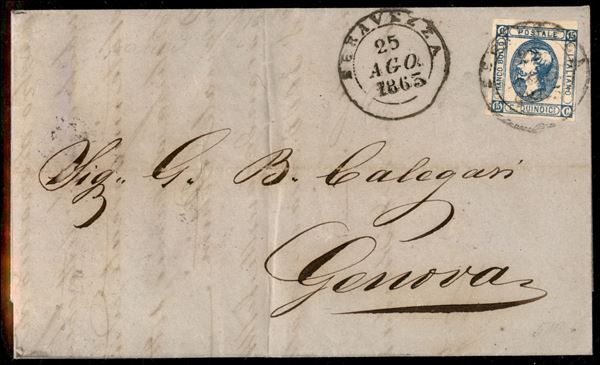 SERAVEZZA
25
AGO.
1863
POSTALE
FRANCO BOLLO
ITALIANO
15
15
C. QUINDICI C.
Sig. G. B. Calegari
Genova